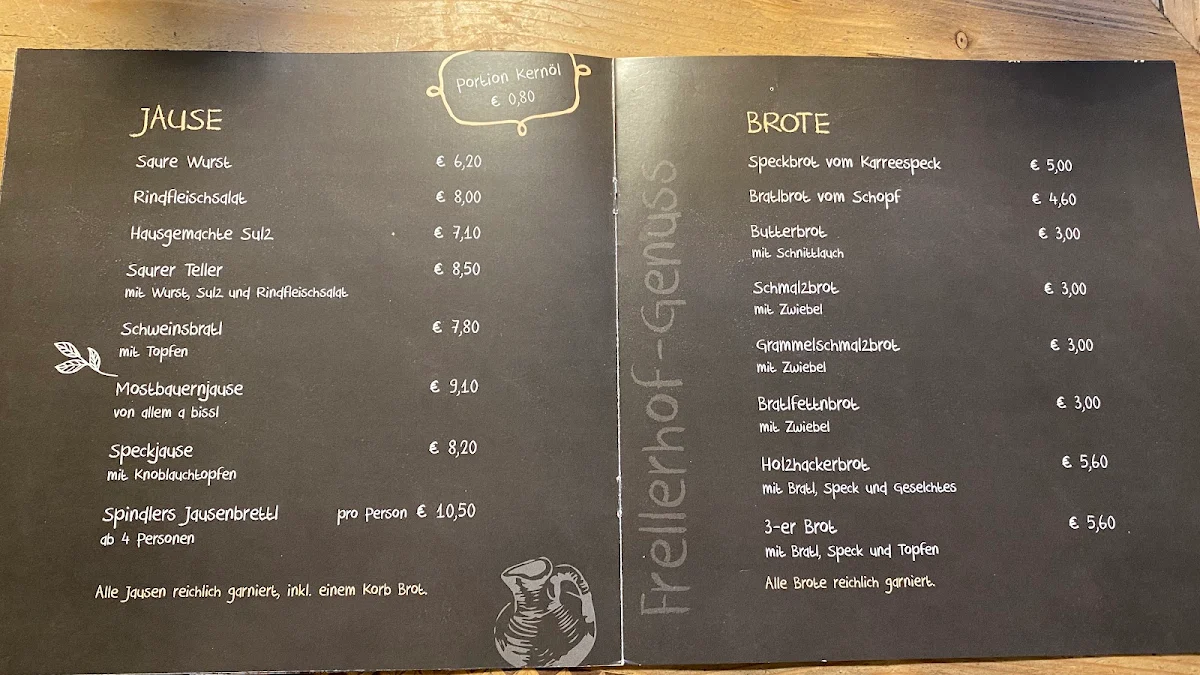 Portion Kernöl
€ 0,80
JAUSE
Saure Wurst € 6,20
Rindfleischsalat € 8,00
Hausgemachte Sulz € 7,10
Saurer Teller € 8,50
mit Wurst, Sulz und Rindfleischsalat
Schweinsbratl € 7,80
mit Topfen
Mostbauernjause € 9,10
von allem a bissl
Speckjause € 8,20
mit Knoblauchtopfen
Spindlers Jausenbrettl pro Person € 10,50
ab 4 Personen
Alle Jausen reichlich garniert, inkl. einem Korb Brot.
Frellerhof-Genuss
BROTE
Speckbrot vom Karreespeck € 5,00
Bratlbrot vom Schopf € 4,60
Butterbrot € 3,00
mit Schnittlauch
Schmalzbrot € 3,00
mit Zwiebel
Grammelschmalzbrot € 3,00
mit Zwiebel
Bratlfettnbrot € 3,00
mit Zwiebel
Holzhackerbrot € 5,60
mit Bratl, Speck und Geselchtes
3-er Brot € 5,60
mit Bratl, Speck und Topfen
Alle Brote reichlich garniert.